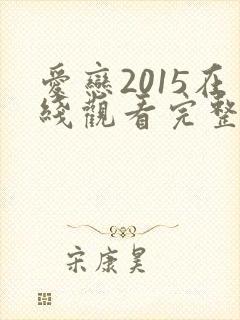 愛戀2015在
綫觀看完整
宋康昊